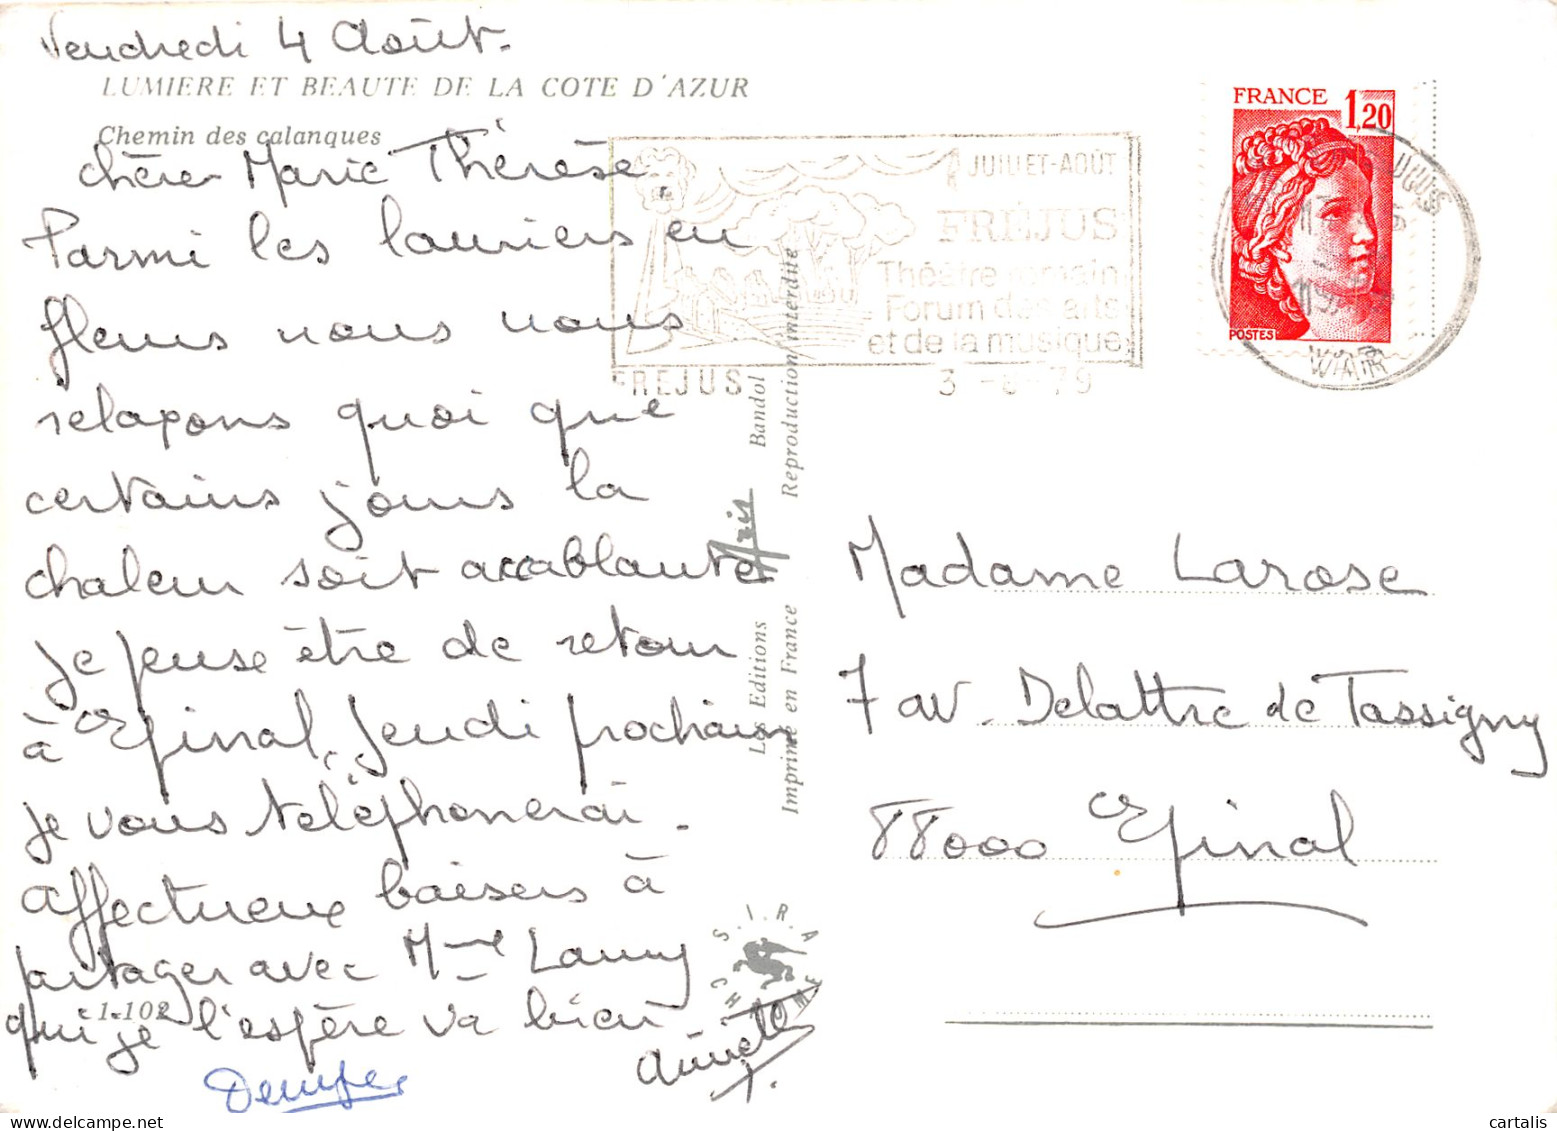 Vendredi 4 Août.
LUMIERE ET BEAUTE DE LA COTE D'AZUR
Chemin des calanques
Chère Marie Thérèse,
Parmi les lauriers en
fleurs nous nous
relaxons quoi que
certains jours la
chaleur soit accablante
je pense être de retour
à Epinal, Jeudi prochain
je vous téléphonerai.
Affectueux baisers à
partager avec Mme Lamy
qui je l'espère va bien
Annette
1-102
Les Editions Aris Bandol
Imprimé en France Reproduction interdite
S.I.R.A
JUILLET-AOÛT
FRÉJUS
Théâtre romain
Forum des arts
et de la musique
FREJUS 3-8-79
FRANCE 1,20
POSTES
VAR
Madame Larose
7 av. Delattre de Tassigny
88000 Epinal
cartalis